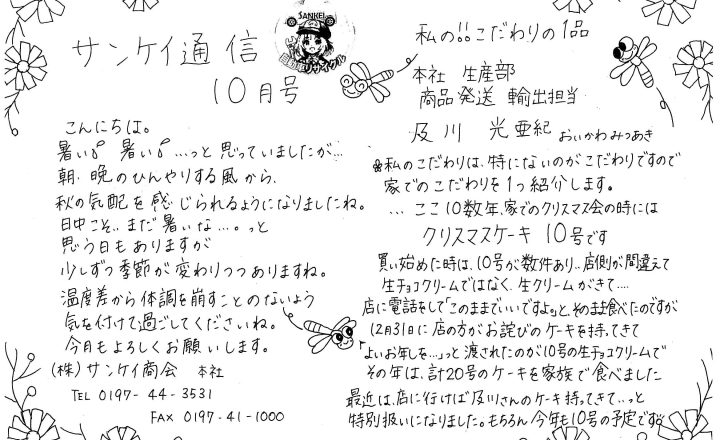 サンケイ通信
10月号
SANKEI
自動車リサイクル
こんにちは。
暑い 暑い…っと思っていましたが…
朝・晩のひんやりする風から、
秋の気配を感じられるようになりましたね。
日中こそ、まだ暑いな…。っと
思う日もありますが
少しずつ季節が変わりつつありますね。
温度差から体調を崩すことのないよう
気を付けて過ごしてくださいね。
今月もよろしくお願いします。
(株)サンケイ商会 本社
TEL 0197-44-3531
FAX 0197-41-1000
私の!!こだわりの1品
本社 生産部
商品発送 輸出担当
及川 光亜紀 おいかわみつあき
私のこだわりは、特にないのがこだわりですので
家でのこだわりを1つ紹介します。
…ここ10数年、家でのクリスマス会の時には
クリスマスケーキ 10号です
買い始めた時は、10号が数件あり、店側が間違えて
生チョコクリームではなく、生クリームができて…
店に電話をして「このままでいいですよ」っと、そのまま食べたのですが
12月31日に店の方がお詫びのケーキを持ってきて
「よいお年を…」っと渡されたのが10号の生チョコクリームで
その年は、計20号のケーキを家族で食べました
最近は、店に行けば及川さんのケーキ持ってきて…っと
特別扱いになりました。もちろん今年も10号の予定です